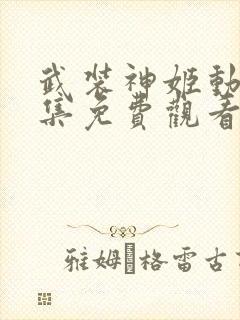 武装神姬動
集免費觀看
雅姆格雷古